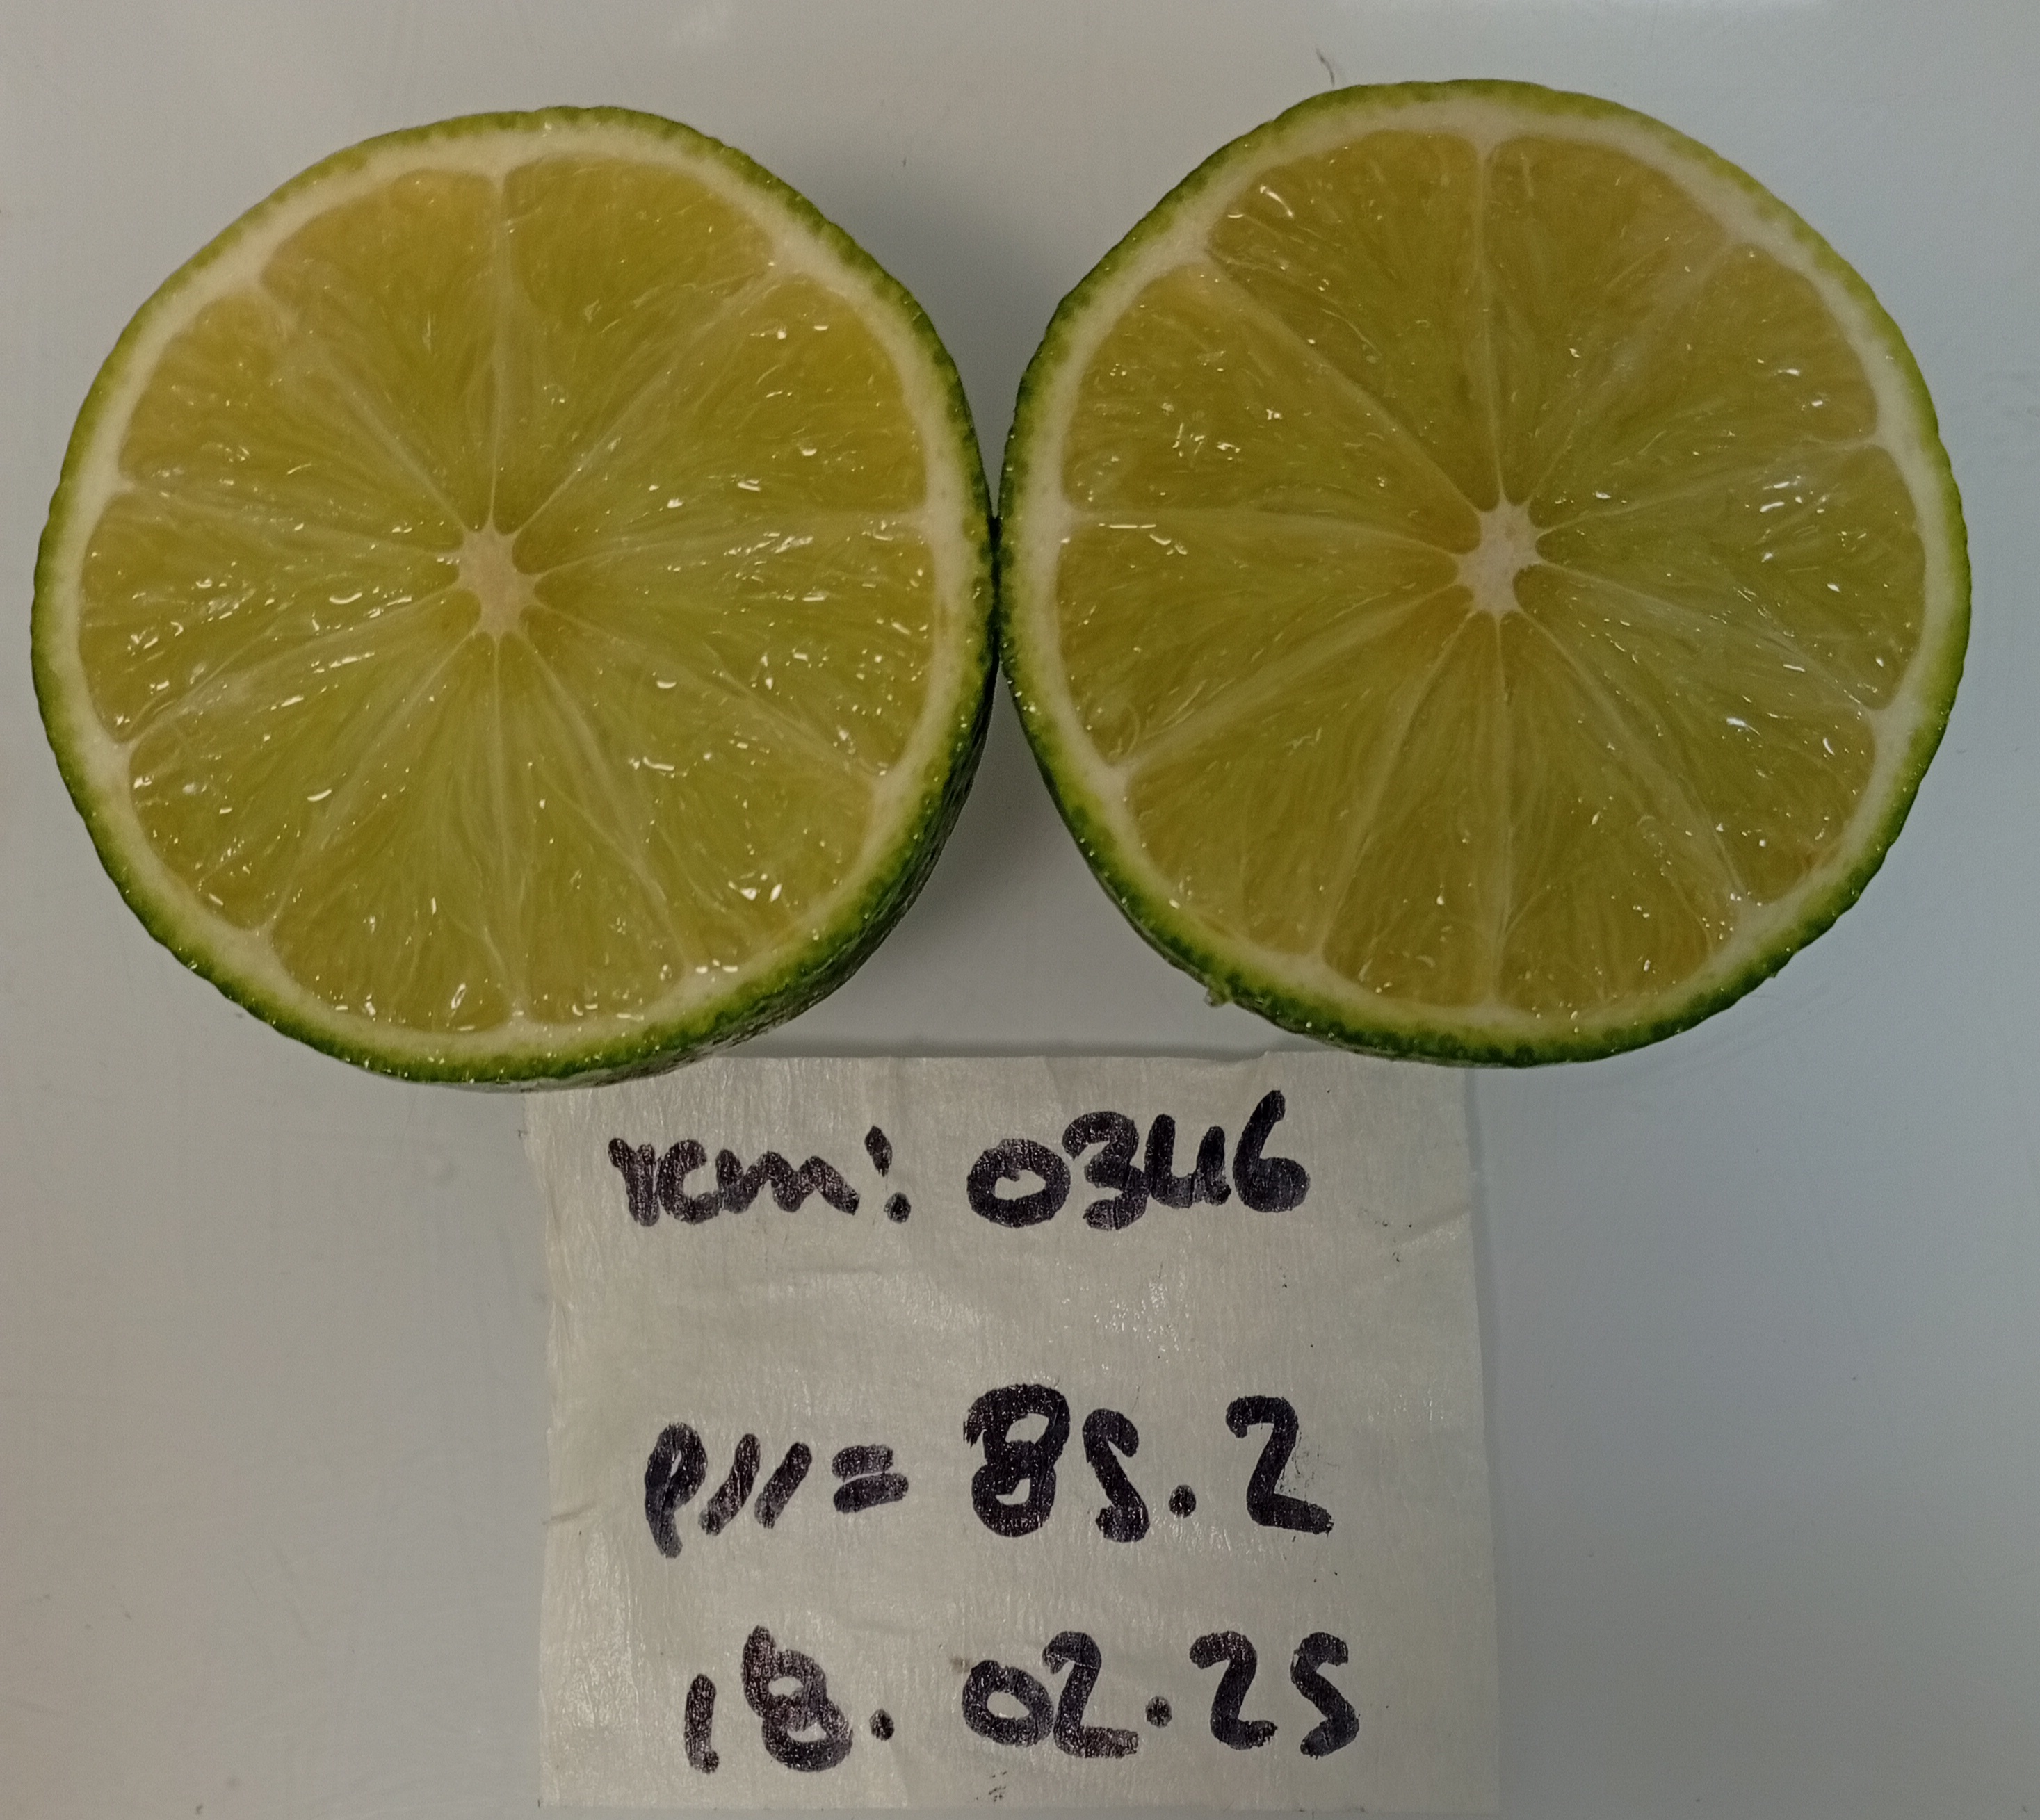 rcm: 0346
P11= 85.2
18.02.25